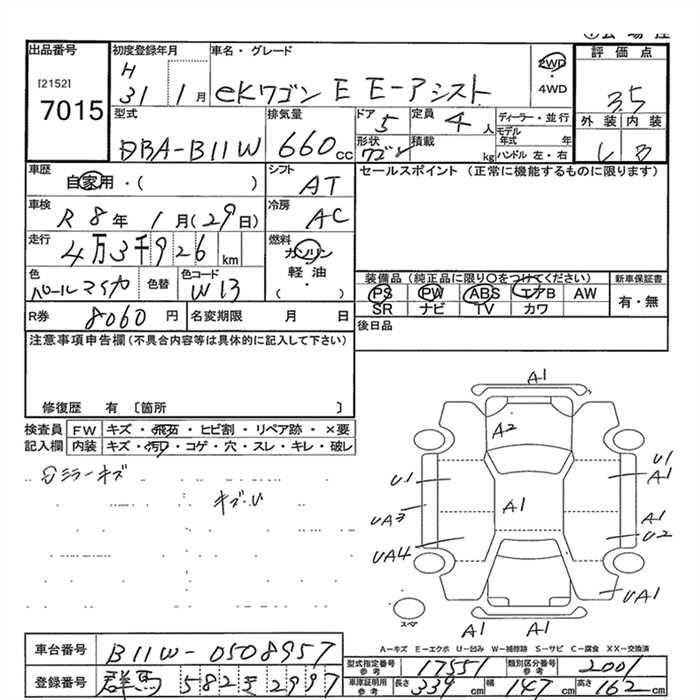 出品番号
[2152]
7015
初度登録年月
H
31 1月
車名・グレード
eKワゴン E E-アシスト
2WD
・
4WD
評価点
3.5
外装 内装
B
型式
DBA-B11W
排気量
660 cc
ドア
5
定員
4人
形状
ワゴン
積載
kg
ディーラー・並行
モデル年式 年
ハンドル 左・右
車歴
自家用・( )
シフト
AT
セールスポイント (正常に機能するものに限ります)
車検
R 8年 1月(29日)
冷房
AC
走行
4万3千926km
燃料
ガソリン
軽油・
( )
色
パールマイカ
色替
色コード
W13
装備品(純正品に限り○をつけてください)
PS PW ABS エアB AW
SR ナビ TV カワ
新車保証書
有・無
R券 8060円
名変期限 月 日
後日品
注意事項申告欄(不具合内容等は具体的に記入して下さい)
修復歴 有 〔箇所 〕
検査員記入欄
FW キズ・飛石・ヒビ割・リペア跡・×要
内装 キズ・汚れ・コゲ・穴・スレ・キレ・破レ
ミラーキズ
キズ・U
A1
A2
U1
U1
A1
A1
UA3
A1
U2
UA4
UA1
スペア
A1 A1
A-キズ E-エクボ U-凹み W-補修跡 S-サビ C-腐食 XX-交換済
車台番号
B11W-0508957
型式指定番号 参考
17551
類別区分番号 参考
2001
登録番号
群馬 582 き 2997
車庫証明用 参考
長さ 339cm 幅 147cm 高さ 162cm